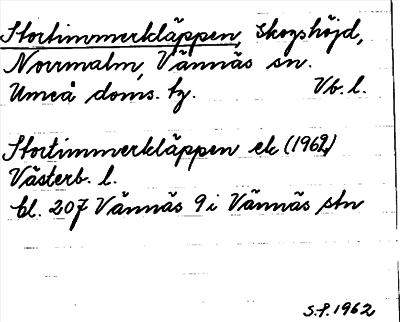 Stortimmerkläppen, Skogshöjd,
Norrmalm, Vännäs sn.
Umeå doms. tg. Vb. l.
Stortimmerkläppen ek (1962)
Västerb. l.
bl. 207 Vännäs 9i Vännäs stn
S.P. 1962